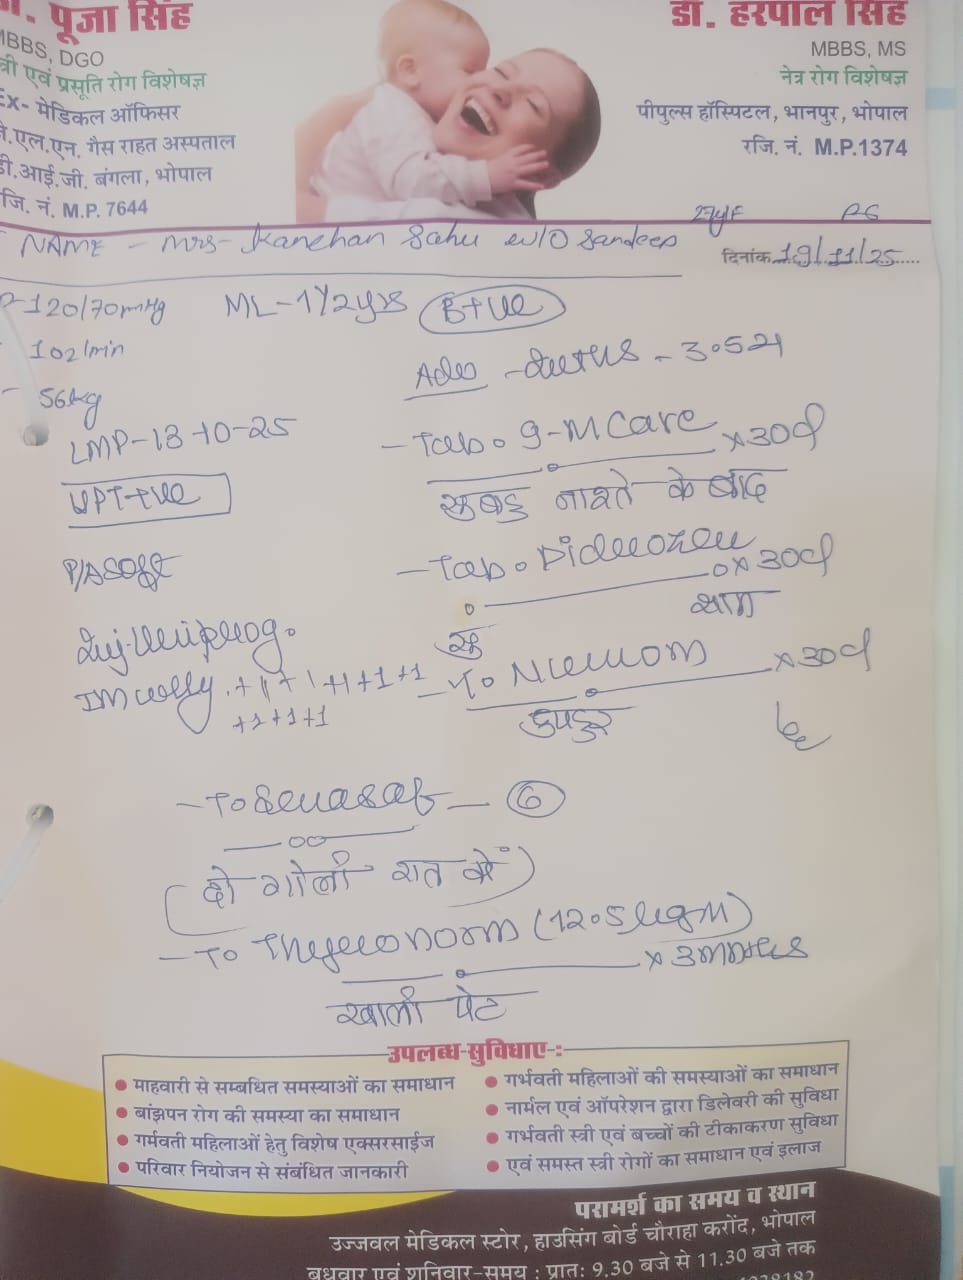 डॉ. पूजा सिंह
MBBS, DGO
स्त्री एवं प्रसूति रोग विशेषज्ञ
Ex- मेडिकल ऑफिसर
जे.एल.एन. गैस राहत अस्पताल
डी.आई.जी. बंगला, भोपाल
रजि. नं. M.P. 7644
डॉ. हरपाल सिंह
MBBS, MS
नेत्र रोग विशेषज्ञ
पीपुल्स हॉस्पिटल, भानपुर, भोपाल
रजि. नं. M.P.1374
27y/F
NAME - Mrs- Kanchan Sahu w/o Sandeep
दिनांक 19/11/25
120/70mmHg ML-1 1/2yrs B+ve
102/min
56kg
3.52
LMP-13-10-25
UPT+ve
P/A Soft
- Tab. G-M Care x30d
सुबह नाश्ते के बाद
- Tab. x30d
सु शाम
Inj.
IM +1+1+1+1+1+1
+1+1+1
x30d
दोपहर
6
(दो गोली रात में)
- To Thyronorm (12.5 ugm)
x 3 months
खाली पेट
उपलब्ध-सुविधाए-:
माहवारी से सम्बधित समस्याओं का समाधान
बांझपन रोग की समस्या का समाधान
गर्मवती महिलाओं हेतु विशेष एक्सरसाईज
परिवार नियोजन से संबंधित जानकारी
गर्भवती महिलाओं की समस्याओं का समाधान
नार्मल एवं ऑपरेशन द्वारा डिलेवरी की सुविधा
गर्भवती स्त्री एवं बच्चों की टीकाकरण सुविधा
एवं समस्त स्त्री रोगों का समाधान एवं इलाज
परामर्श का समय व स्थान
उज्जवल मेडिकल स्टोर, हाउसिंग बोर्ड चौराहा करोंद, भोपाल
बुधवार एवं शनिवार-समय : प्रातः 9.30 बजे से 11.30 बजे तक